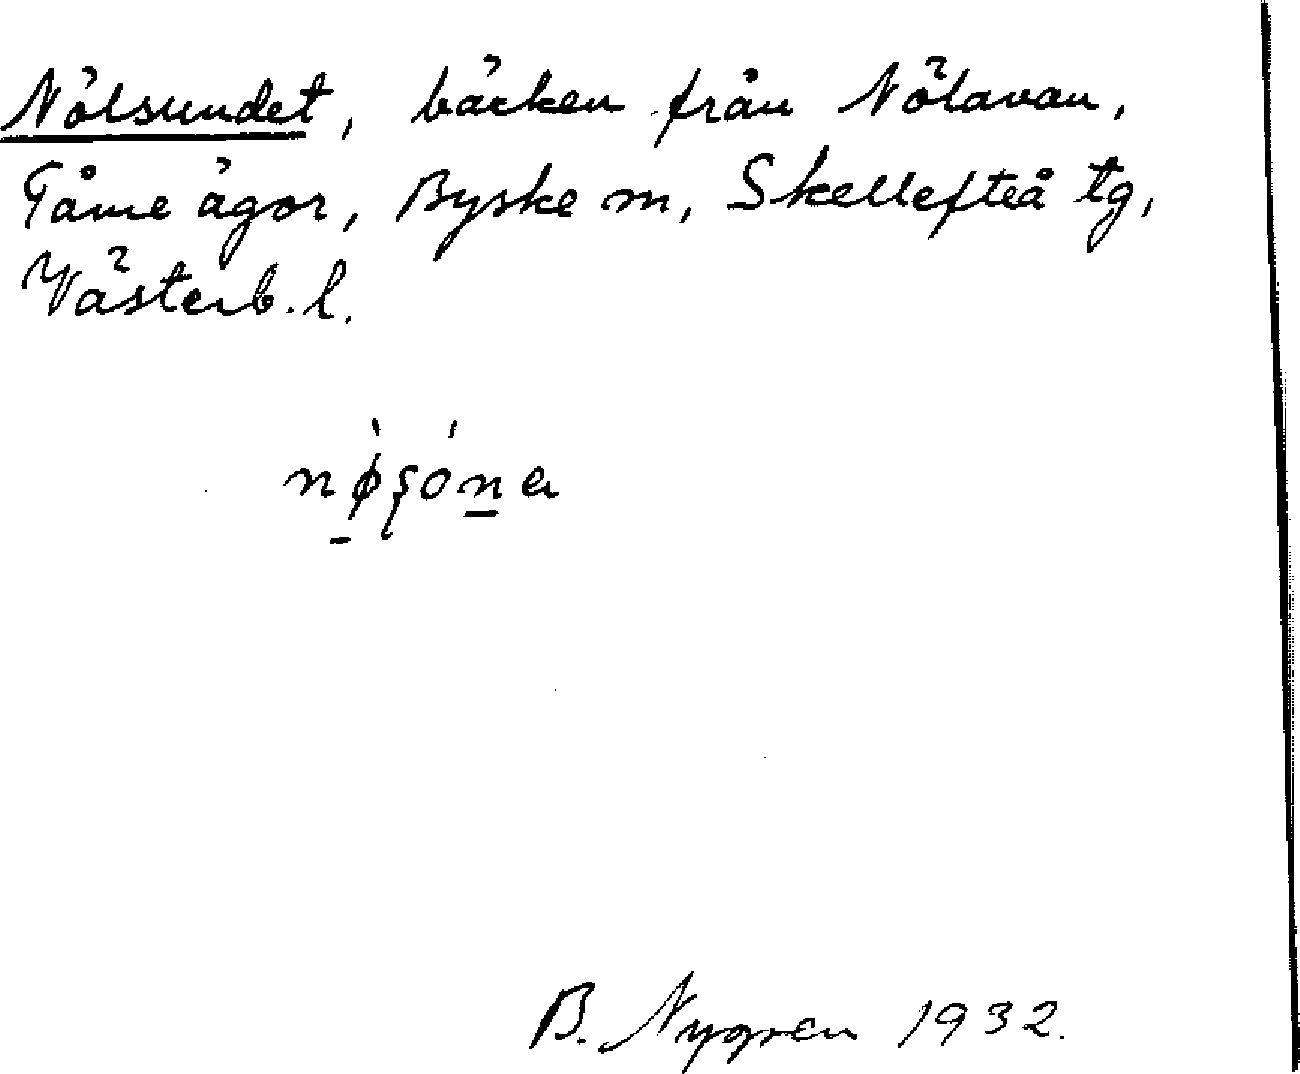 Nölsundet, bäcken från Nölavan,
Tåme ägor, Byske sn, Skellefteå tg,
Västerb. l.
nø̠̀ʂón̠a
B. Nygren 1932.